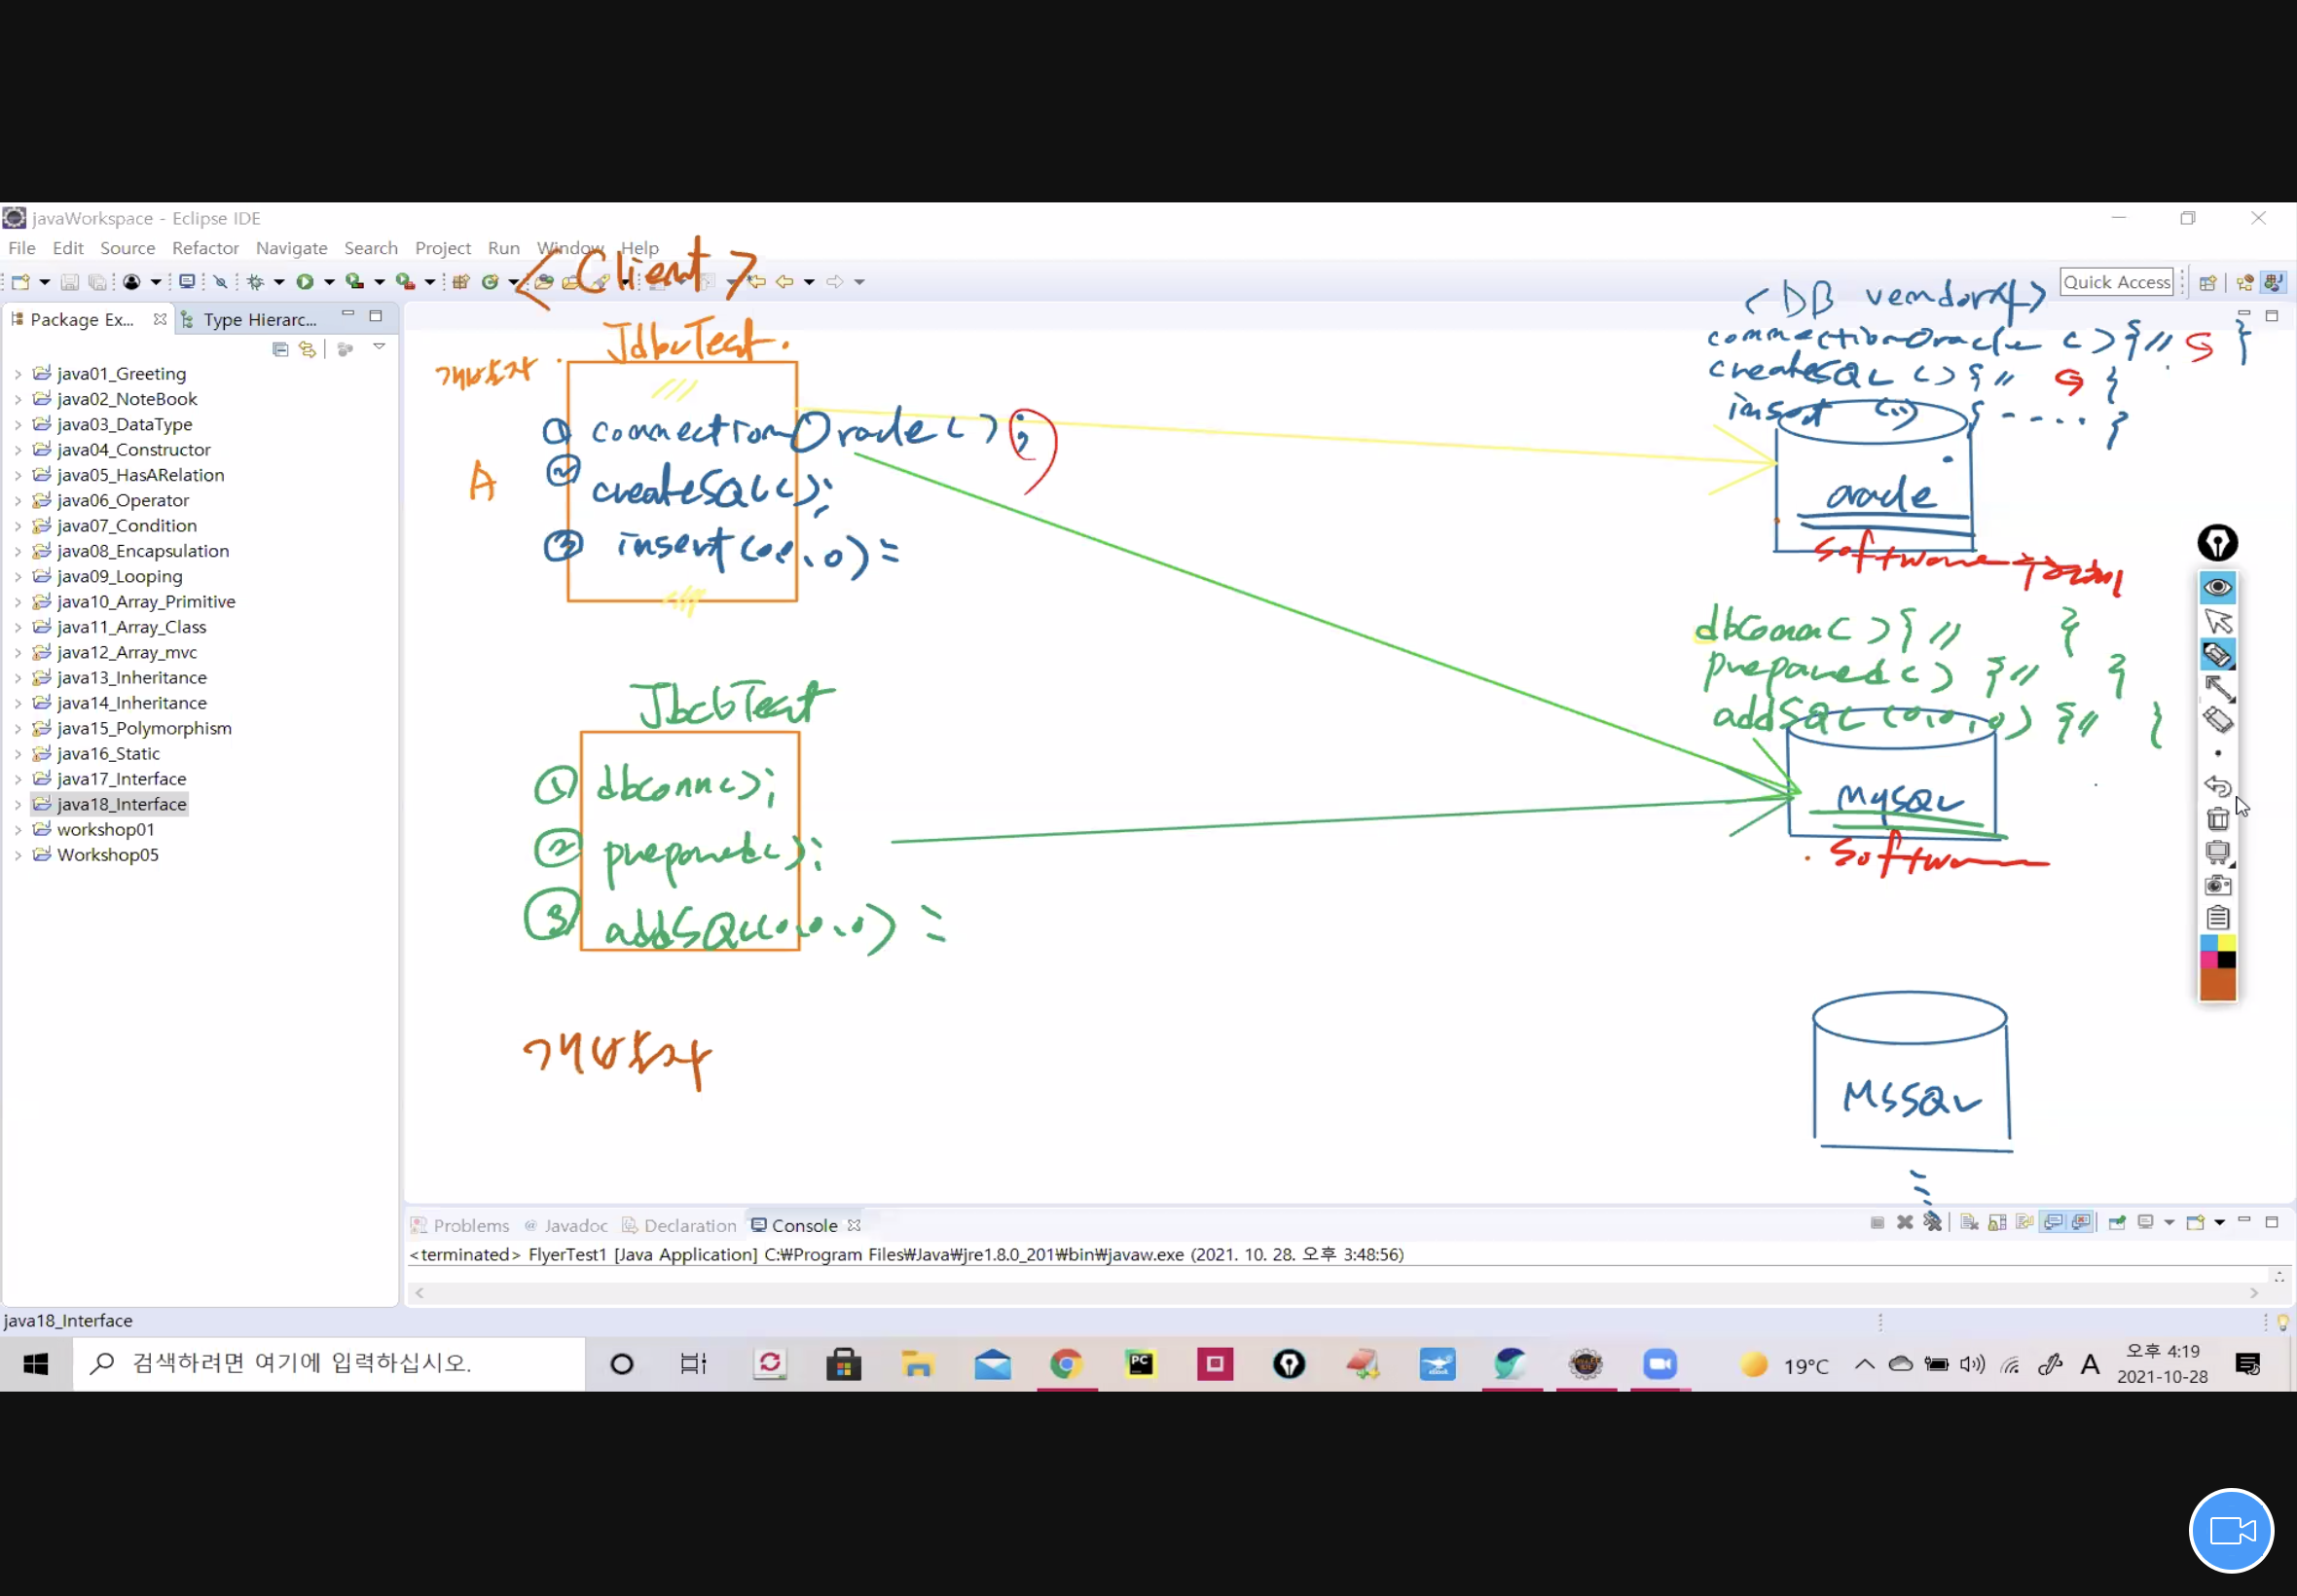 javaWorkspace - Eclipse IDE
File Edit Source Refactor Navigate Search Project Run Window Help
Quick Access
Package Ex...
Type Hierarc...
java01_Greeting
java02_NoteBook
java03_DataType
java04_Constructor
java05_HasARelation
java06_Operator
java07_Condition
java08_Encapsulation
java09_Looping
java10_Array_Primitive
java11_Array_Class
java12_Array_mvc
java13_Inheritance
java14_Inheritance
java15_Polymorphism
java16_Static
java17_Interface
java18_Interface
workshop01
Workshop05
<Client>
JdbcTest.
개발자
A
① connectionOracle();
② createSQL();
③ insert(
JbcbTest
① dbconn();
② prepared();
③ addSQL(0,0,0)
개발자
<DB vendor사>
connectionOracle () {// }
createSQL () {// }
insert (..) { ---- }
oracle
software
dbConn() {// }
prepared() {// }
addSQL (0,0,0) {// }
MySQL
MSSQL
Problems @ Javadoc Declaration Console
<terminated> FlyerTest1 [Java Application] C:₩Program Files₩Java₩jre1.8.0_201₩bin₩javaw.exe (2021. 10. 28. 오후 3:48:56)
java18_Interface
검색하려면 여기에 입력하십시오.
PC
19°C
A
오후 4:19
2021-10-28